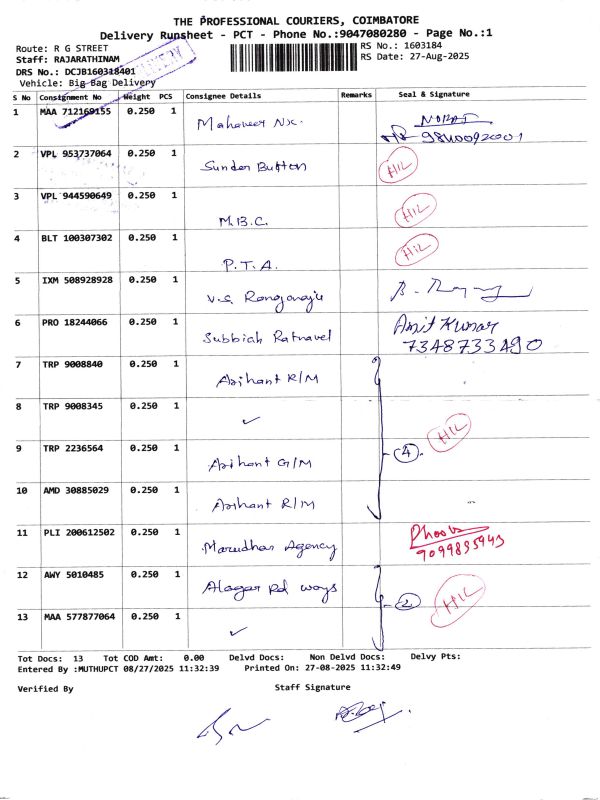 THE PROFESSIONAL COURIERS, COIMBATORE
Delivery Runsheet - PCT - Phone No.:9047080280 - Page No.:1
Route: R G STREET
RS No.: 1603184
Staff: RAJARATHINAM
RS Date: 27-Aug-2025
DRS No.: DCJB160318401
Vehicle: Big Bag Delivery
S No Consignment No Weight PCS Consignee Details Remarks Seal & Signature
1 MAA 712169155 0.250 1 Mahaveer NX.
2 VPL 953737064 0.250 1 Sunder Button HIL
3 VPL 944590649 0.250 1 M.B.C. HIL
4 BLT 100307302 0.250 1 P.T.A. HIL
5 IXM 508928928 0.250 1 V.S. Rangaraju
6 PRO 18244066 0.250 1 Subbiah Ratnavel Amit Kumar
7348733490
7 TRP 9008840 0.250 1 Arihant R/M
8 TRP 9008345 0.250 1 ✓ HIL
9 TRP 2236564 0.250 1 Arihant G/M 4
10 AMD 30885029 0.250 1 Arihant R/M
11 PLI 200612502 0.250 1 Marudhar Agency
12 AWY 5010485 0.250 1 Alagar Rd ways 2 HIL
13 MAA 577877064 0.250 1 ✓
Tot Docs: 13 Tot COD Amt: 0.00 Delvd Docs: Non Delvd Docs: Delvy Pts:
Entered By :MUTHUPCT 08/27/2025 11:32:39 Printed On: 27-08-2025 11:32:49
Verified By Staff Signature